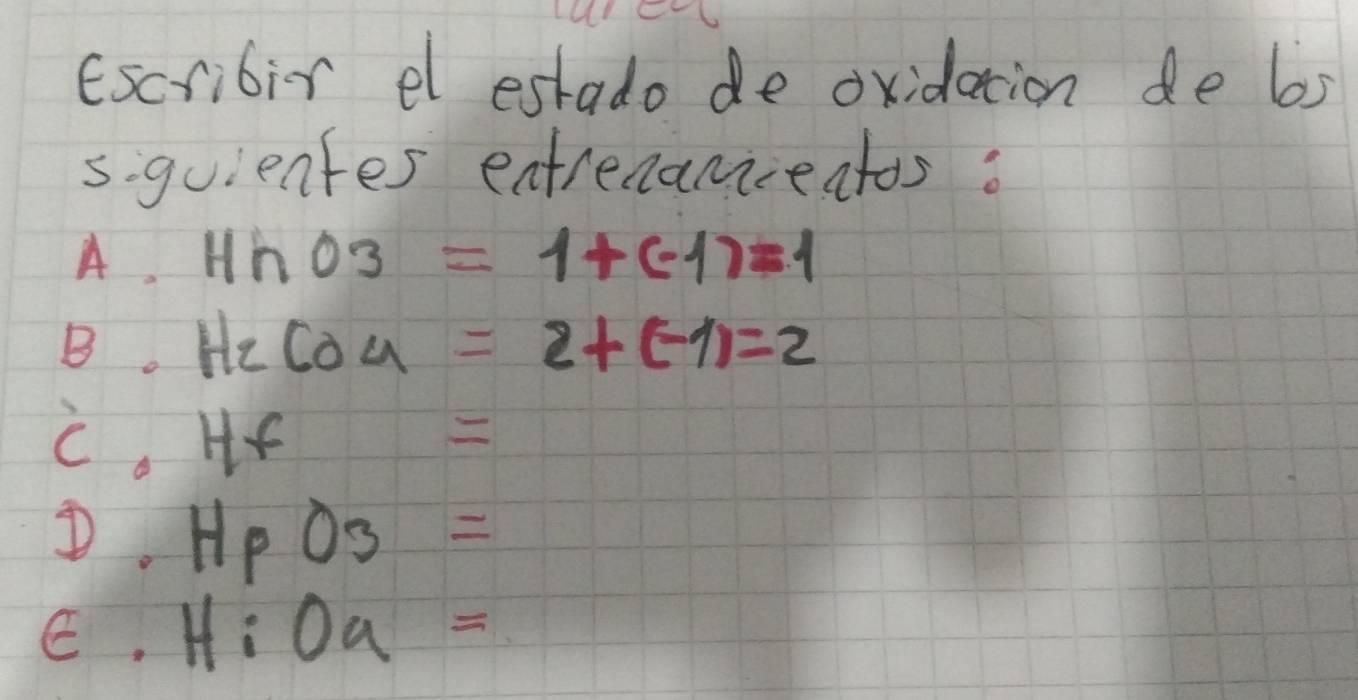 tarea
Escribir el estado de oxidacion de los
siguientes entrenamientos :
A . HnO3 = 1+(-1)=1
B . H2CO4 = 2+(-1)=2
C . Hf =
D . HpO3 =
E . HiO4 =